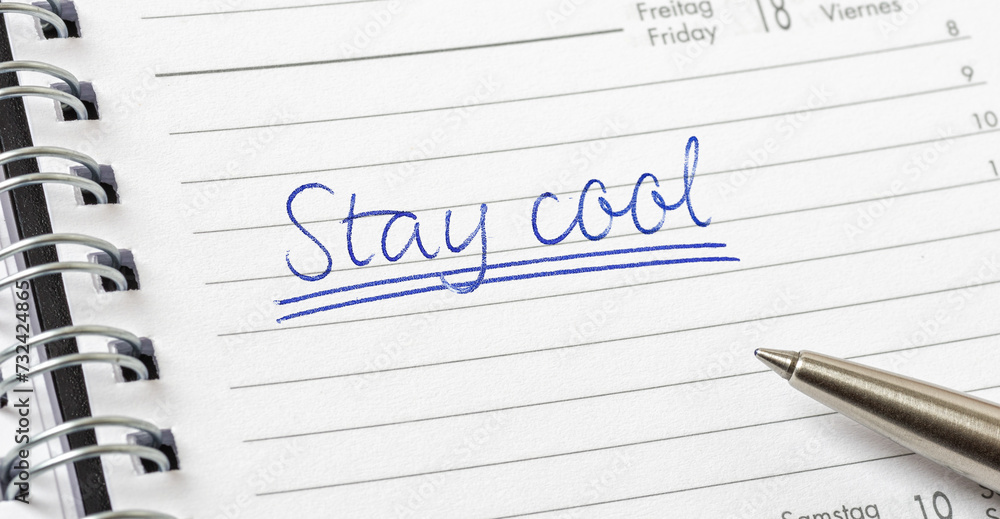 Freitag
Friday
18
Viernes
8
9
10
Stay cool
Samstag
10
Adobe Stock | #732424865